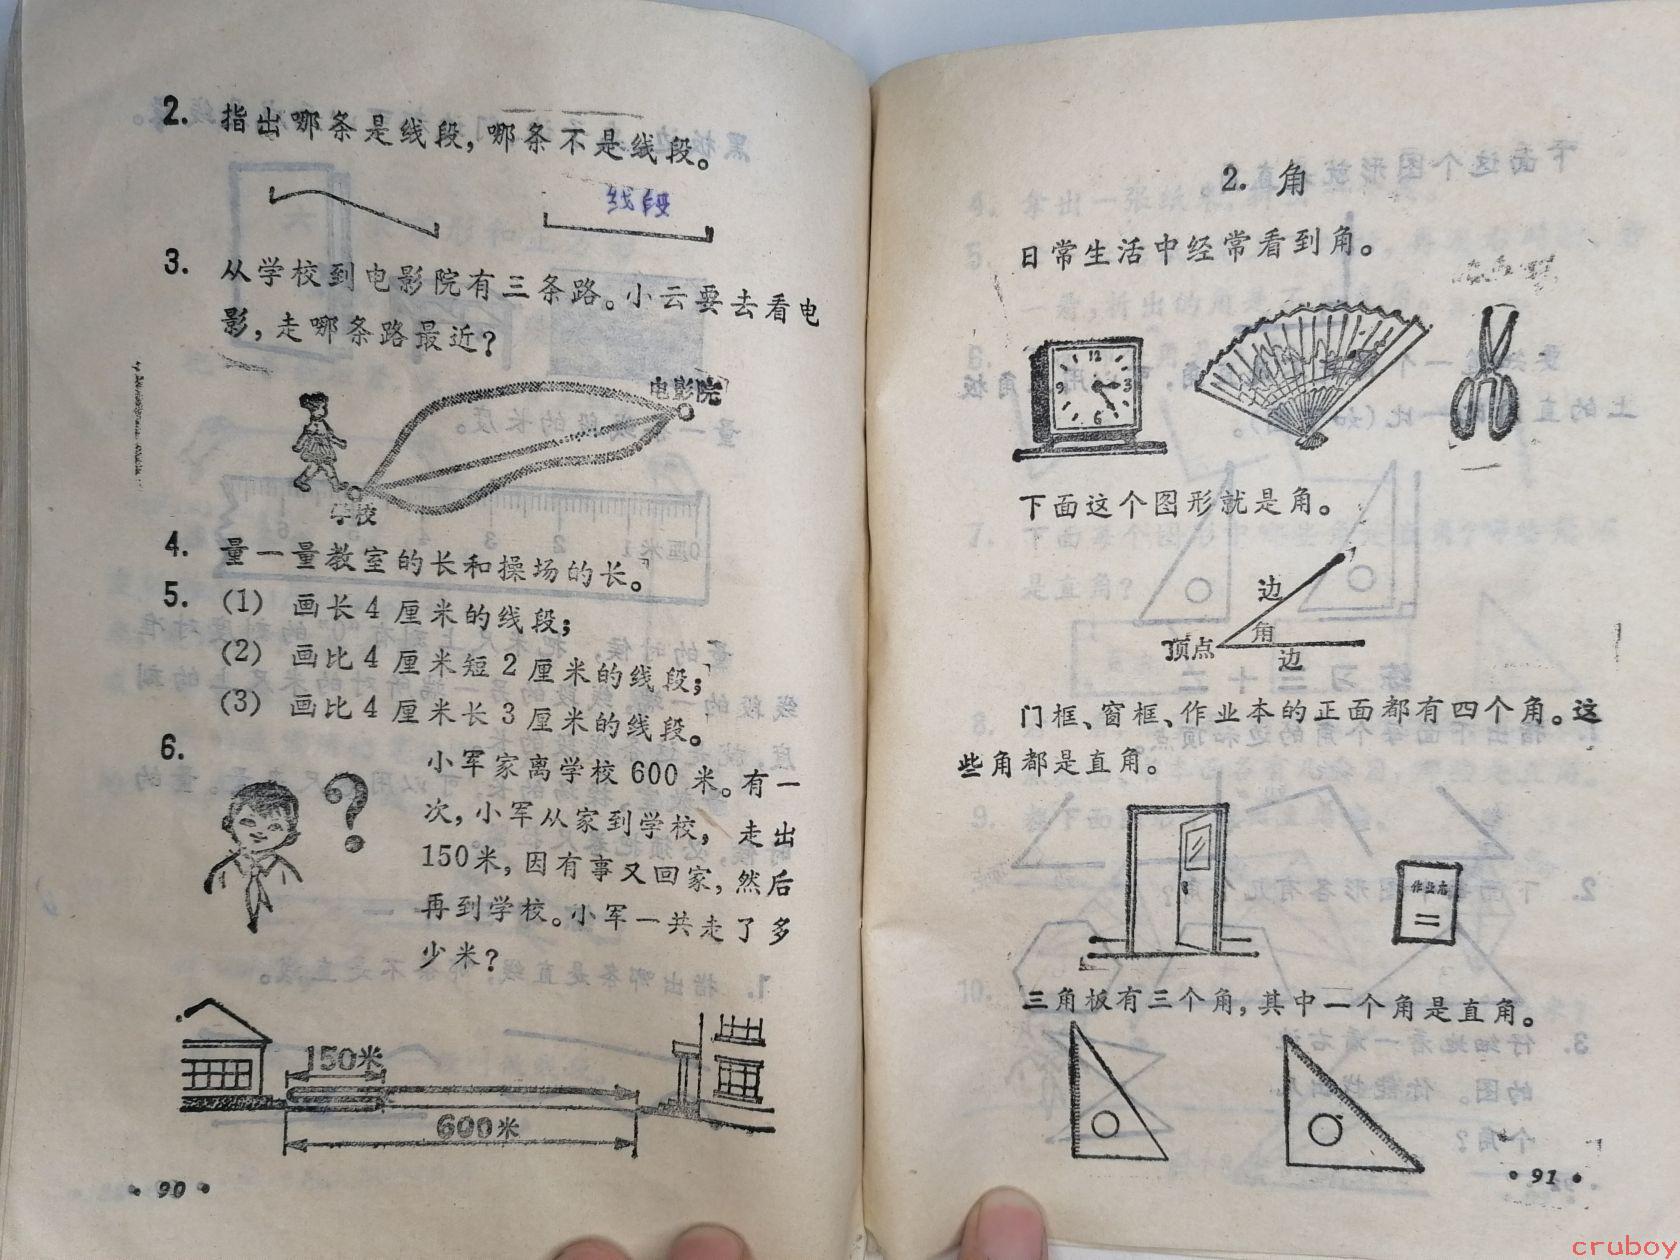 2. 指出哪条是线段，哪条不是线段。
线段
3. 从学校到电影院有三条路。小云要去看电
影，走哪条路最近？
电影院
学校
4. 量一量教室的长和操场的长。
5. (1) 画长4厘米的线段；
(2) 画比4厘米短2厘米的线段；
(3) 画比4厘米长3厘米的线段。
6. 小军家离学校600米。有一
次，小军从家到学校，走出
150米，因有事又回家，然后
再到学校。小军一共走了多
少米？
?
150米
600米
·90·
2. 角
日常生活中经常看到角。
12
9
3
6
下面这个图形就是角。
边
角
顶点
边
门框、窗框、作业本的正面都有四个角。这
些角都是直角。
作业本
三角板有三个角，其中一个角是直角。
·91·
cruboy